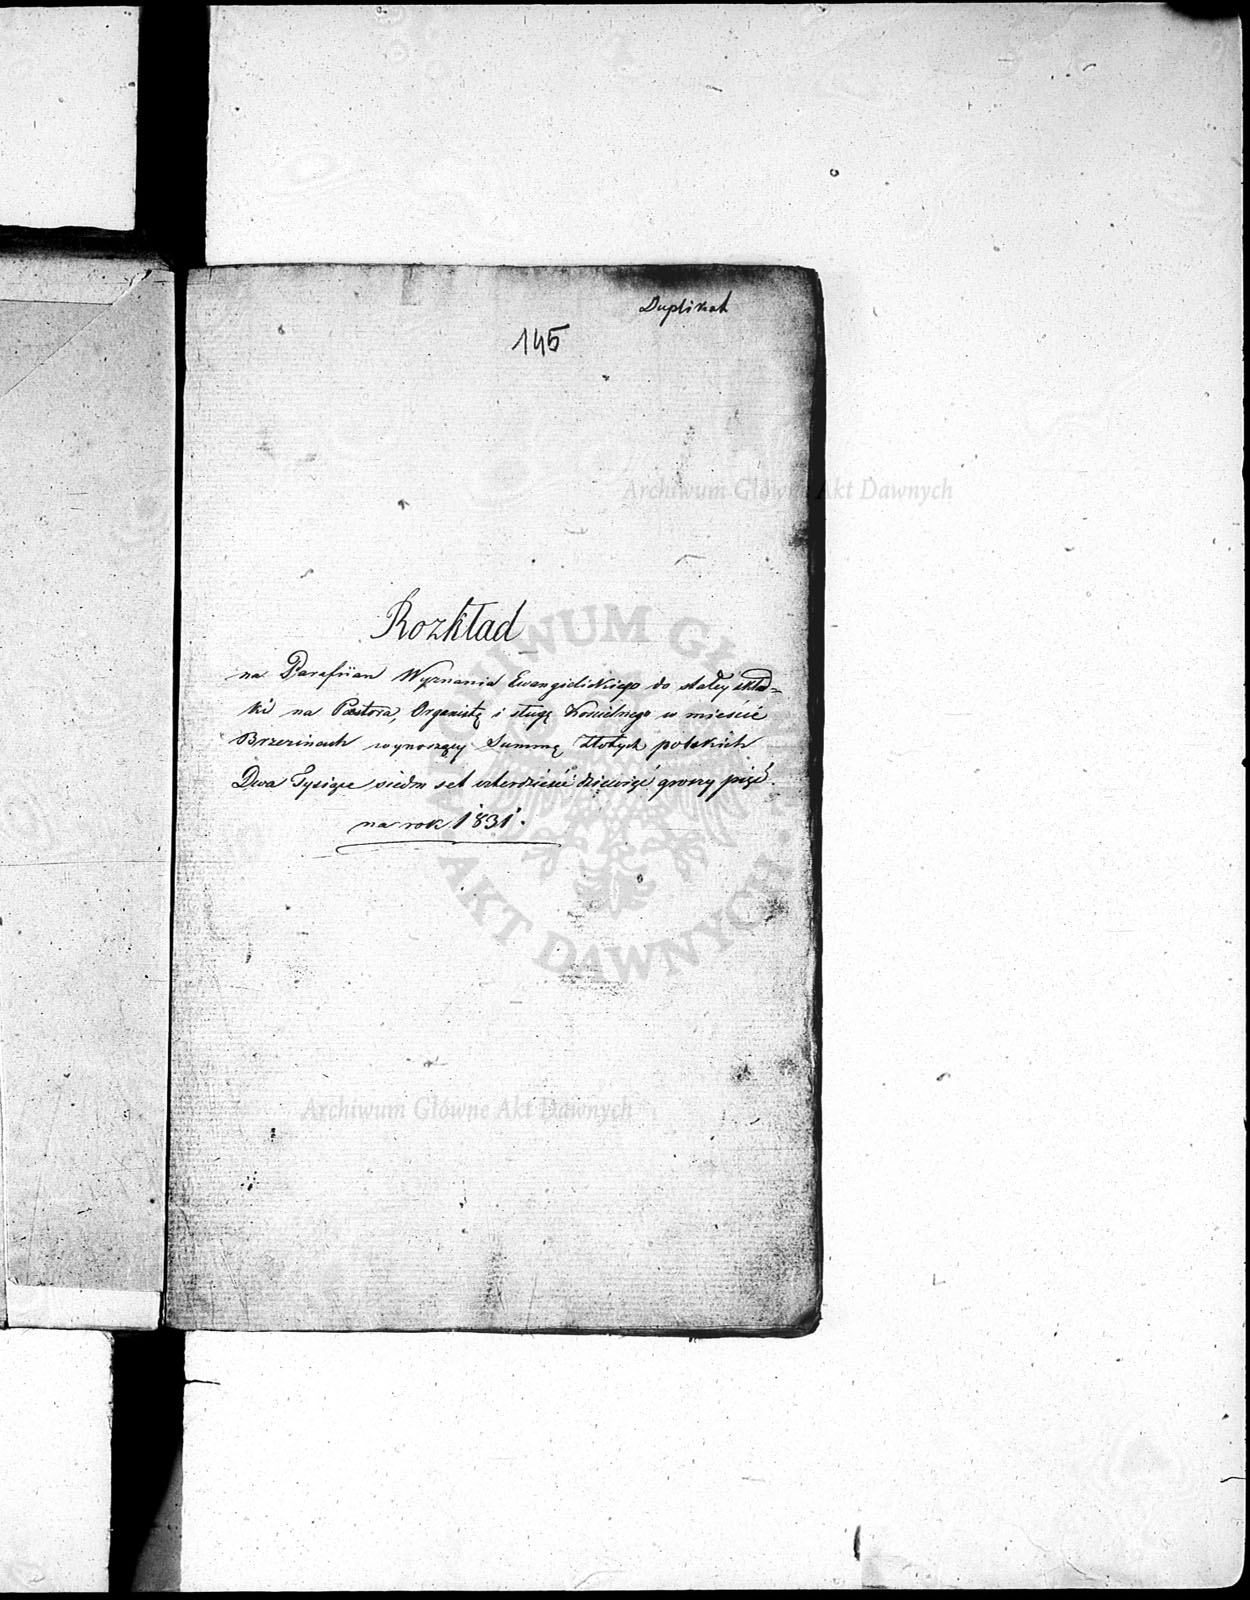 Duplikat
145
Archiwum Główne Akt Dawnych
Rozkład
na Parafiian Wyznania Ewangielickiego do stałey skład=
ki na Pastora, Organistę i sługę Kościelnego w mieście
Brzezinach wynoszący Summę Złotych polskich
Dwa Tysiące siedm set czterdzieście dziewięć groszy pięć.
na rok 1831.
ARCHIWUM GŁÓWNE AKT DAWNYCH
Archiwum Główne Akt Dawnych